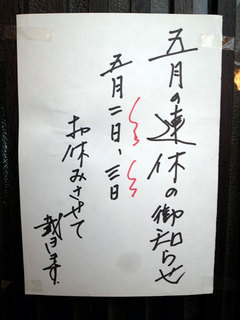 五月の連休の御知らせ
五月二日、三日
お休みさせて
戴きます。